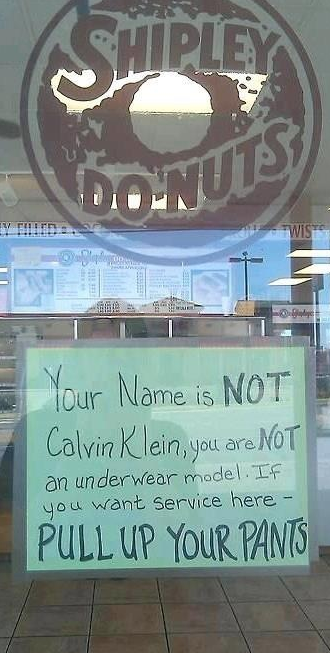 SHIPLEY
DO-NUTS
FILLED
TWISTS
Your Name is NOT
Calvin Klein, you are NOT
an underwear model. If
you want service here -
PULL UP YOUR PANTS